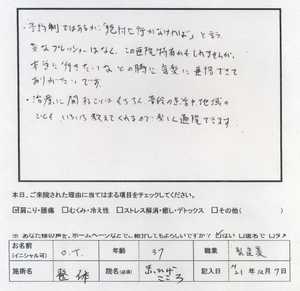 ・予約制ではあるが、「絶対に行かなければ」と言う
変なプレッシャーはなく、この医院特有かもしれませんが、
本当に「行きたい！」なとの時に気楽に通院できて
ありがたいです。
・治療に関わることはもちろん、普段の生活や地域の
ことも いろいろ教えてくれるので楽しく通院できます。
本日、ご来院された理由に当てはまる項目をチェックしてください。
☑肩こり・腰痛 □むくみ・冷え性 □ストレス解消・癒し・デトックス □その他( )
※ あなた様の声を、ホームページなどで、紹介してもよろしいですか？ はい □匿名で □ダメ
お名前(イニシャル可) O.T. 年齢 37 職業
施術名 整体 院名(店舗) こころ 記入日 H21年12月7日